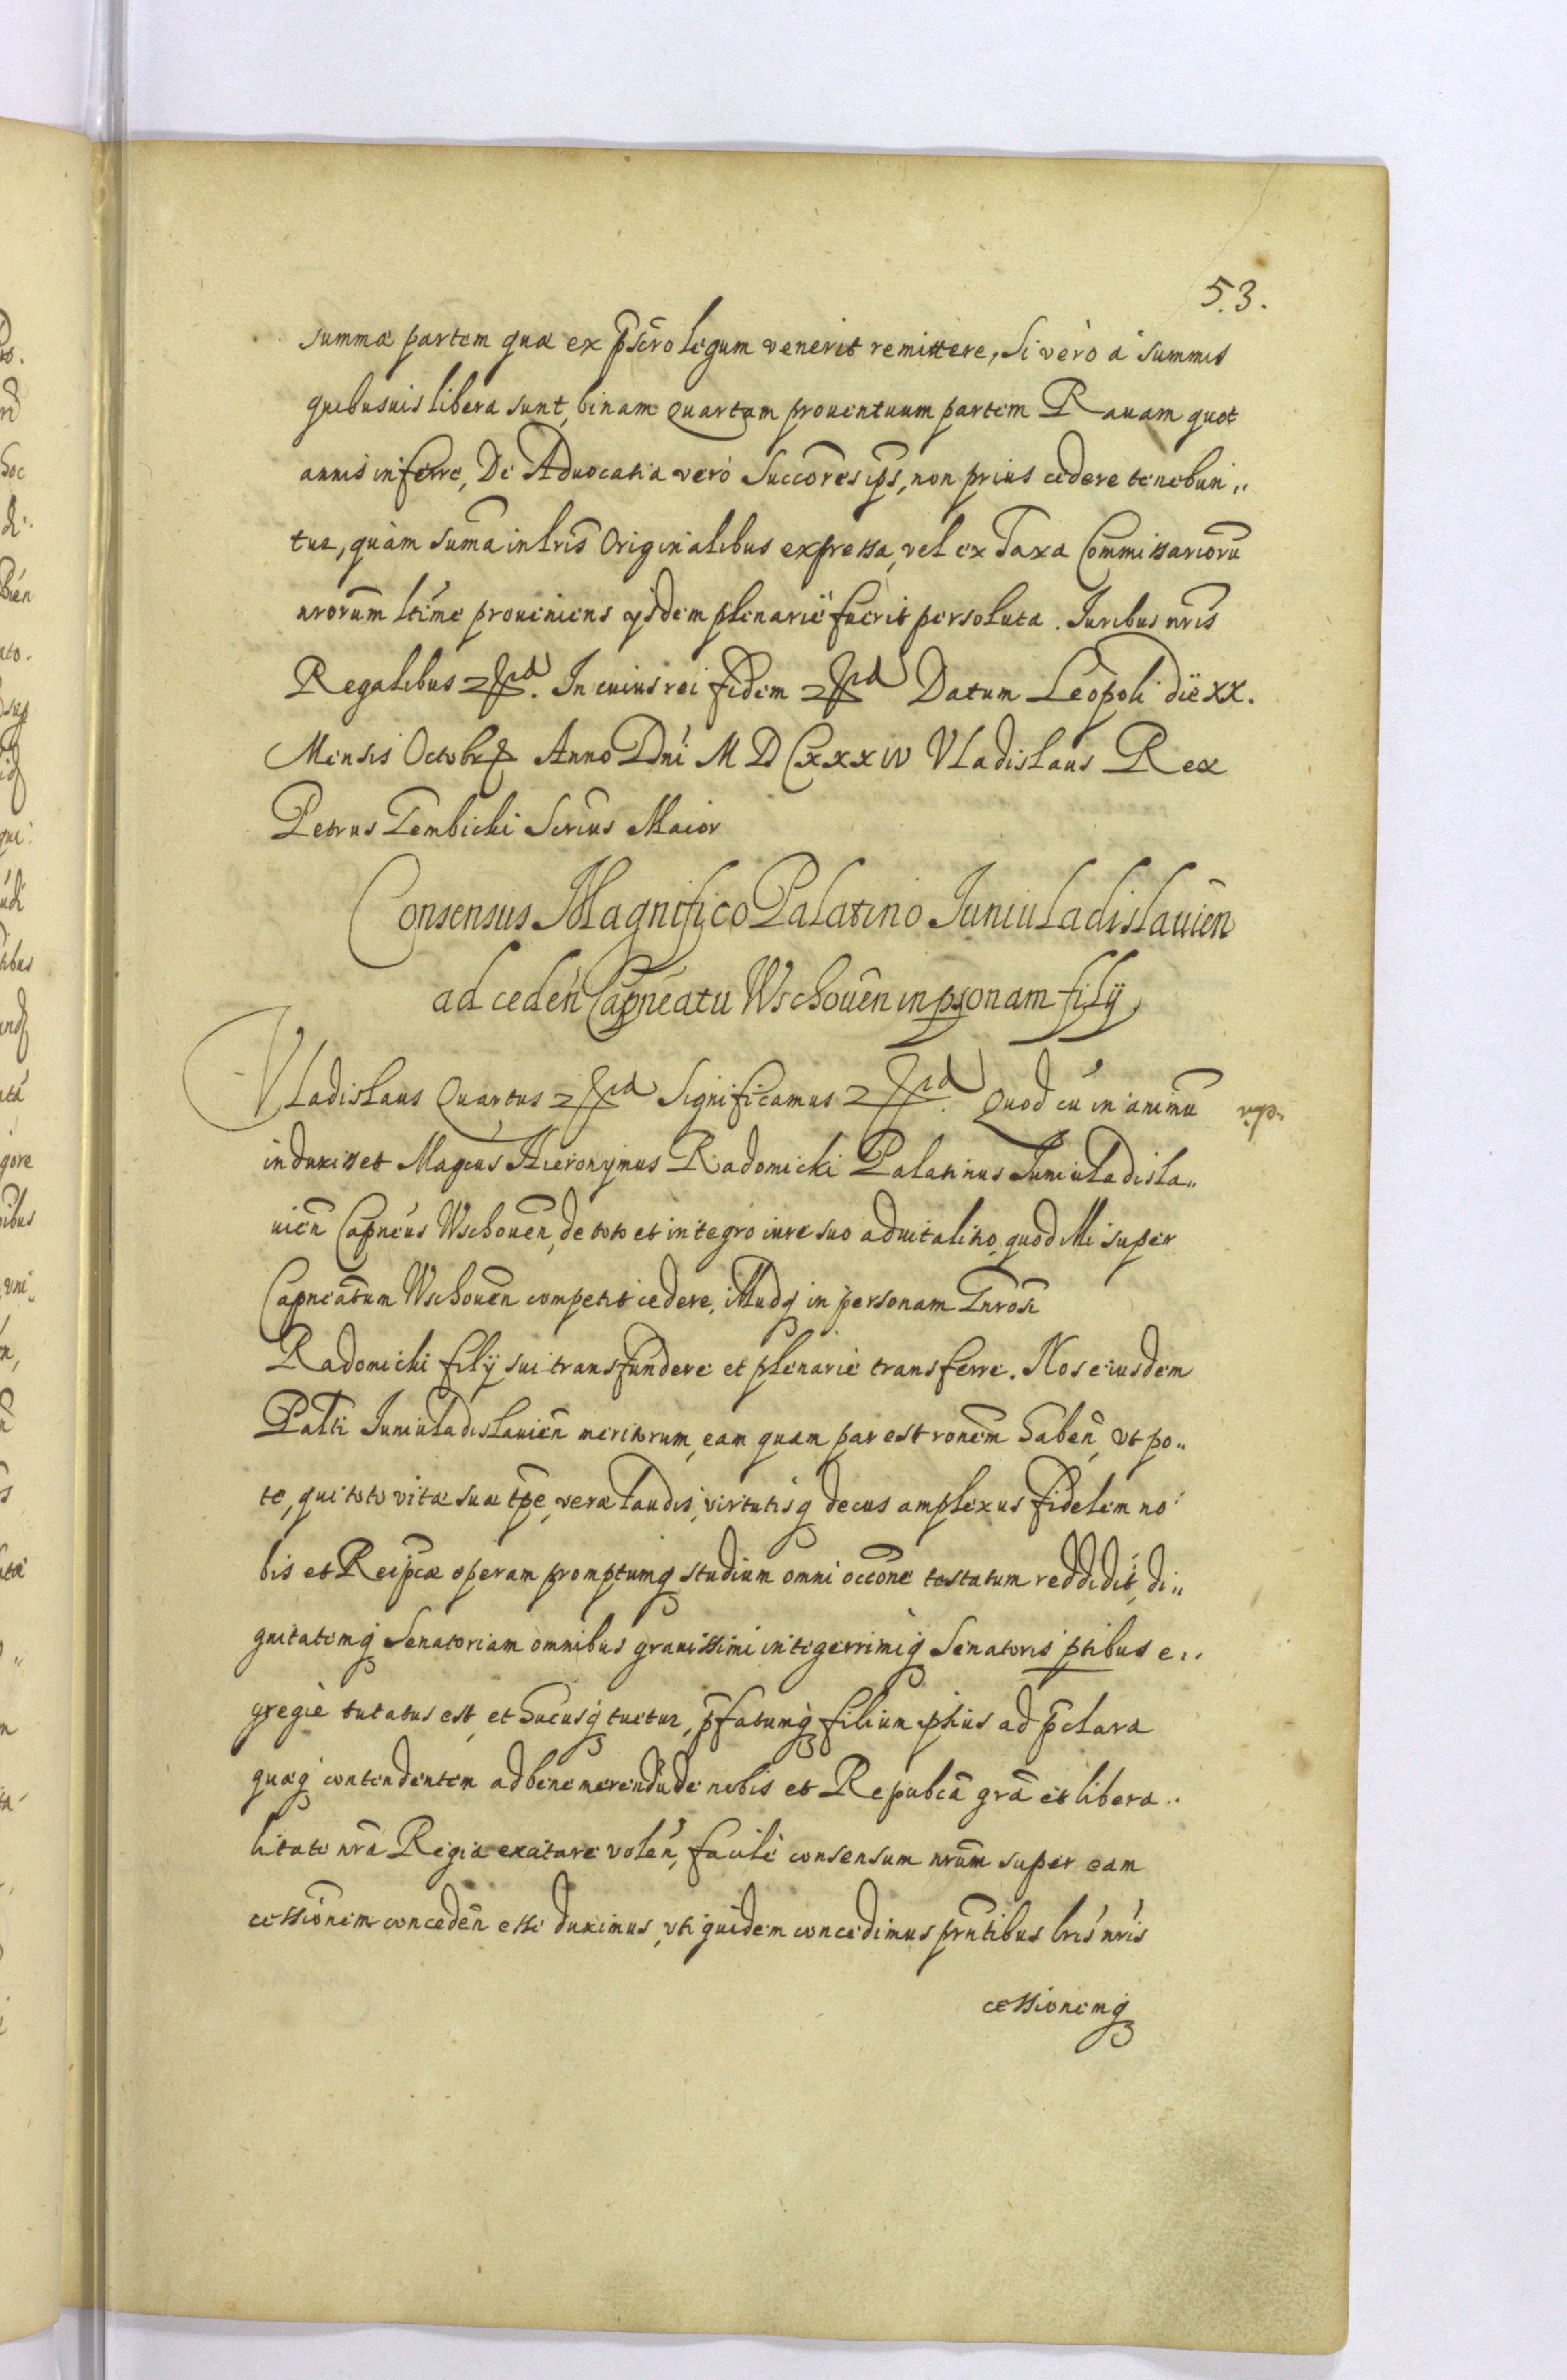 53.
summæ partem quæ ex p̄scr̄o legum venerit remittere, Si verò à summis
quibusuis libera sunt, binam Quartam prouentuum partem Rauam quot
annis inferre, De Aduocatia verò Succōres ip̄s, non prius cedere tenebun„
tur, quàm sum̄a in lr̄is Originalibus expressa, vel ex Taxa Commissariorū
nrōrum ltīme proueniens ysdem plenariè fuerit persoluta. Iuribus nr̄is
Regalibus In cuius rei fidem Datum Leopoli die XX.
Mensis Octobr Anno Dn̄i M D CXXXIV Vladislaus Rex
Petrus Gembicki Secrīus Maior
Consensus Magnifico Palatino Iuniuladislauien̄
ad ceden̄ Capn̄eatu Wschouen̄ in p̱sonam filÿ
Vladislaus Quartus Significamus Quod cū in animū
induxisset Magcūs Hieronymus Radomicki Palatinus Iuniuladisla„
uien̄ Capnēus Wschouen̄, de toto et integro iure suo aduitalitio, quod illi super
Capneātum Wschouen̄ competit cedere, illudq̨ in personam Gnrōsi
Radomicki filÿ sui transfundere et plenariè transferre. Nos eiusdem
Paltī Iuniuladislauien̄ meritorum, eam quam par est rōnem haben̄, vt po„
te, qui toto vitæ suæ tp̄e, veræ laudis, virtutisq̨ decus amplexus fidelem no
bis et Reip̄cæ operam promptumq̨ studium omni occōne testatum reddidit, di„
gnitatemq̨ Senatoriam omnibus grauissimi integerrimiq̨ Senatoris p̱tibus e„
gregiè tutatus est, et hucusq̨ tuetur, p̄fatumq̨ filium ip̄ius ad p̄clara
quæq̨ contendentem ad bene merendū de nobis et Repubcā grā et libera„
litate nr̄a Regia excitare volen̄, facilè consensum nrūm super eam
cessionem conceden̄ esse duximus, vti quidem concedimus prn̄tibus lr̄is nr̄is
cessionemq̨